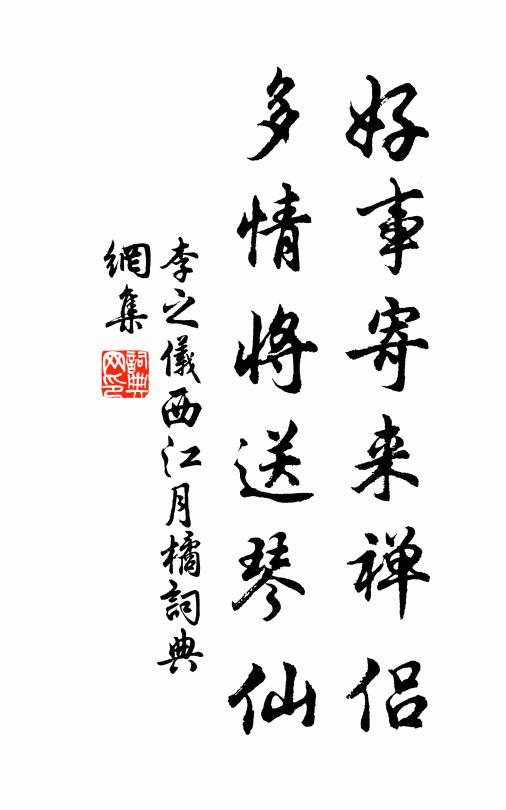 好事寄来禅侣
多情将送琴仙
李之儀西江月橘詞典
網集
詞典網印